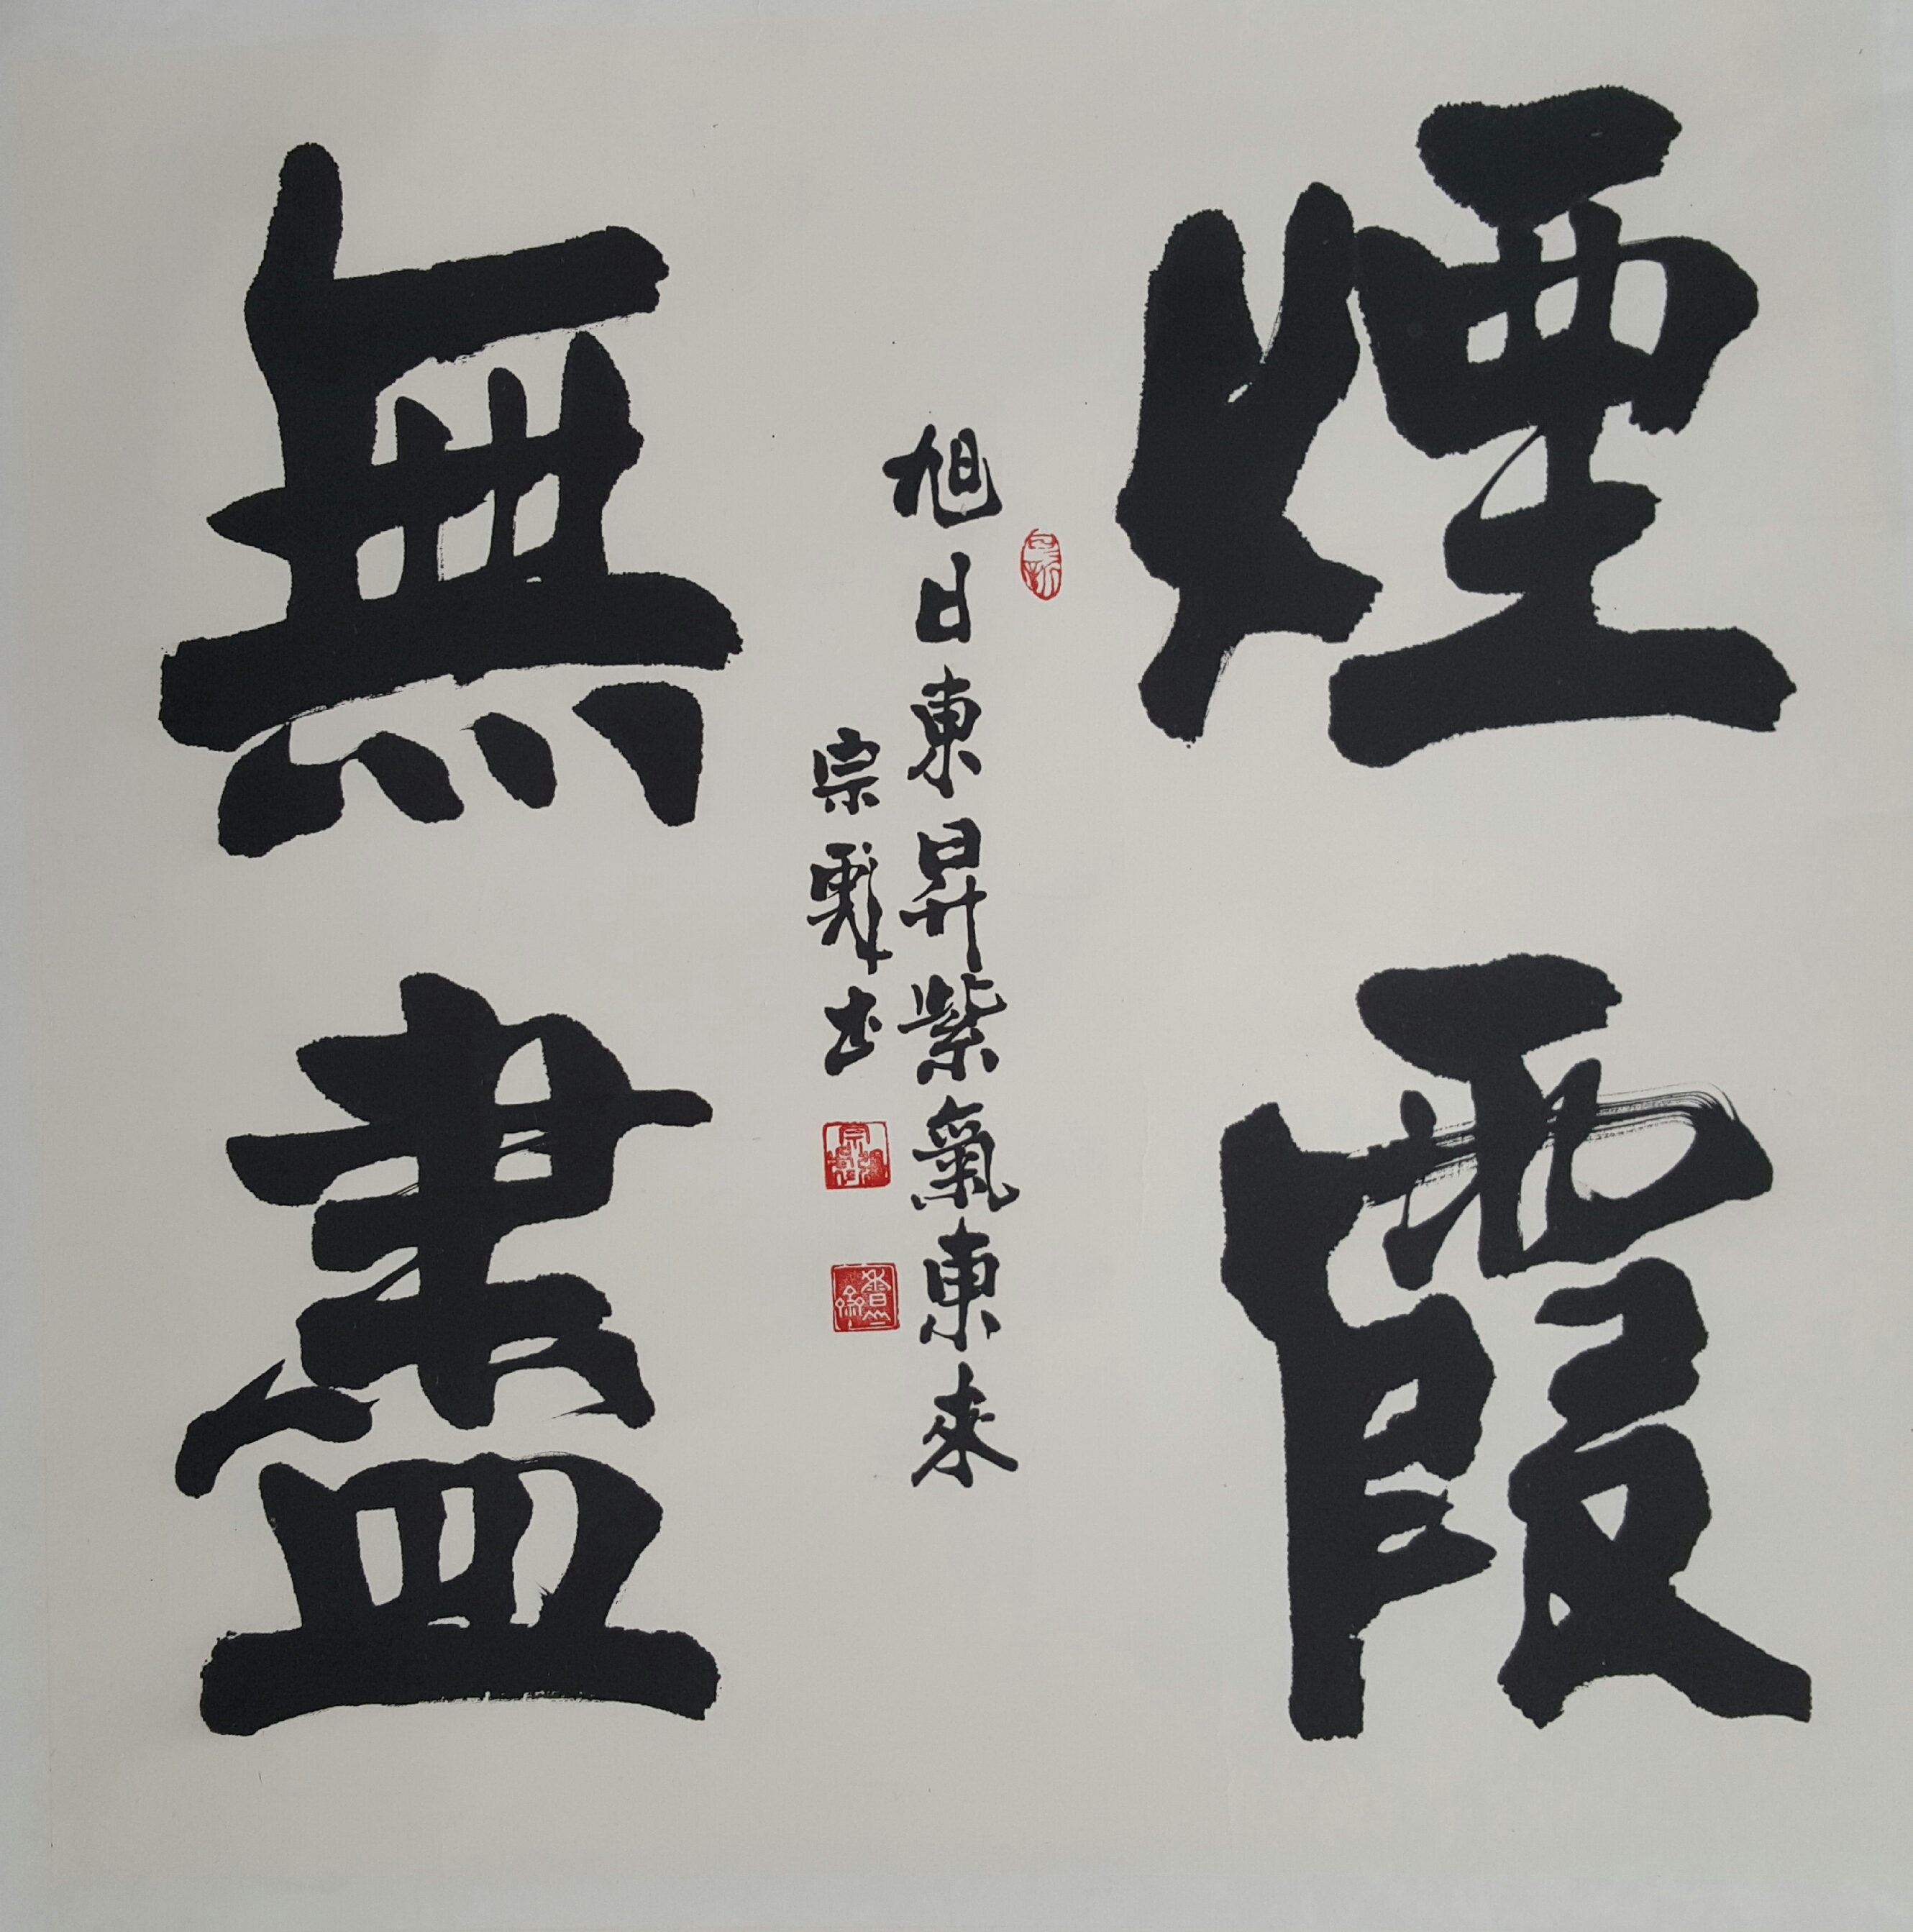 煙霞
無盡
旭日東昇紫氣東來
宗彝书